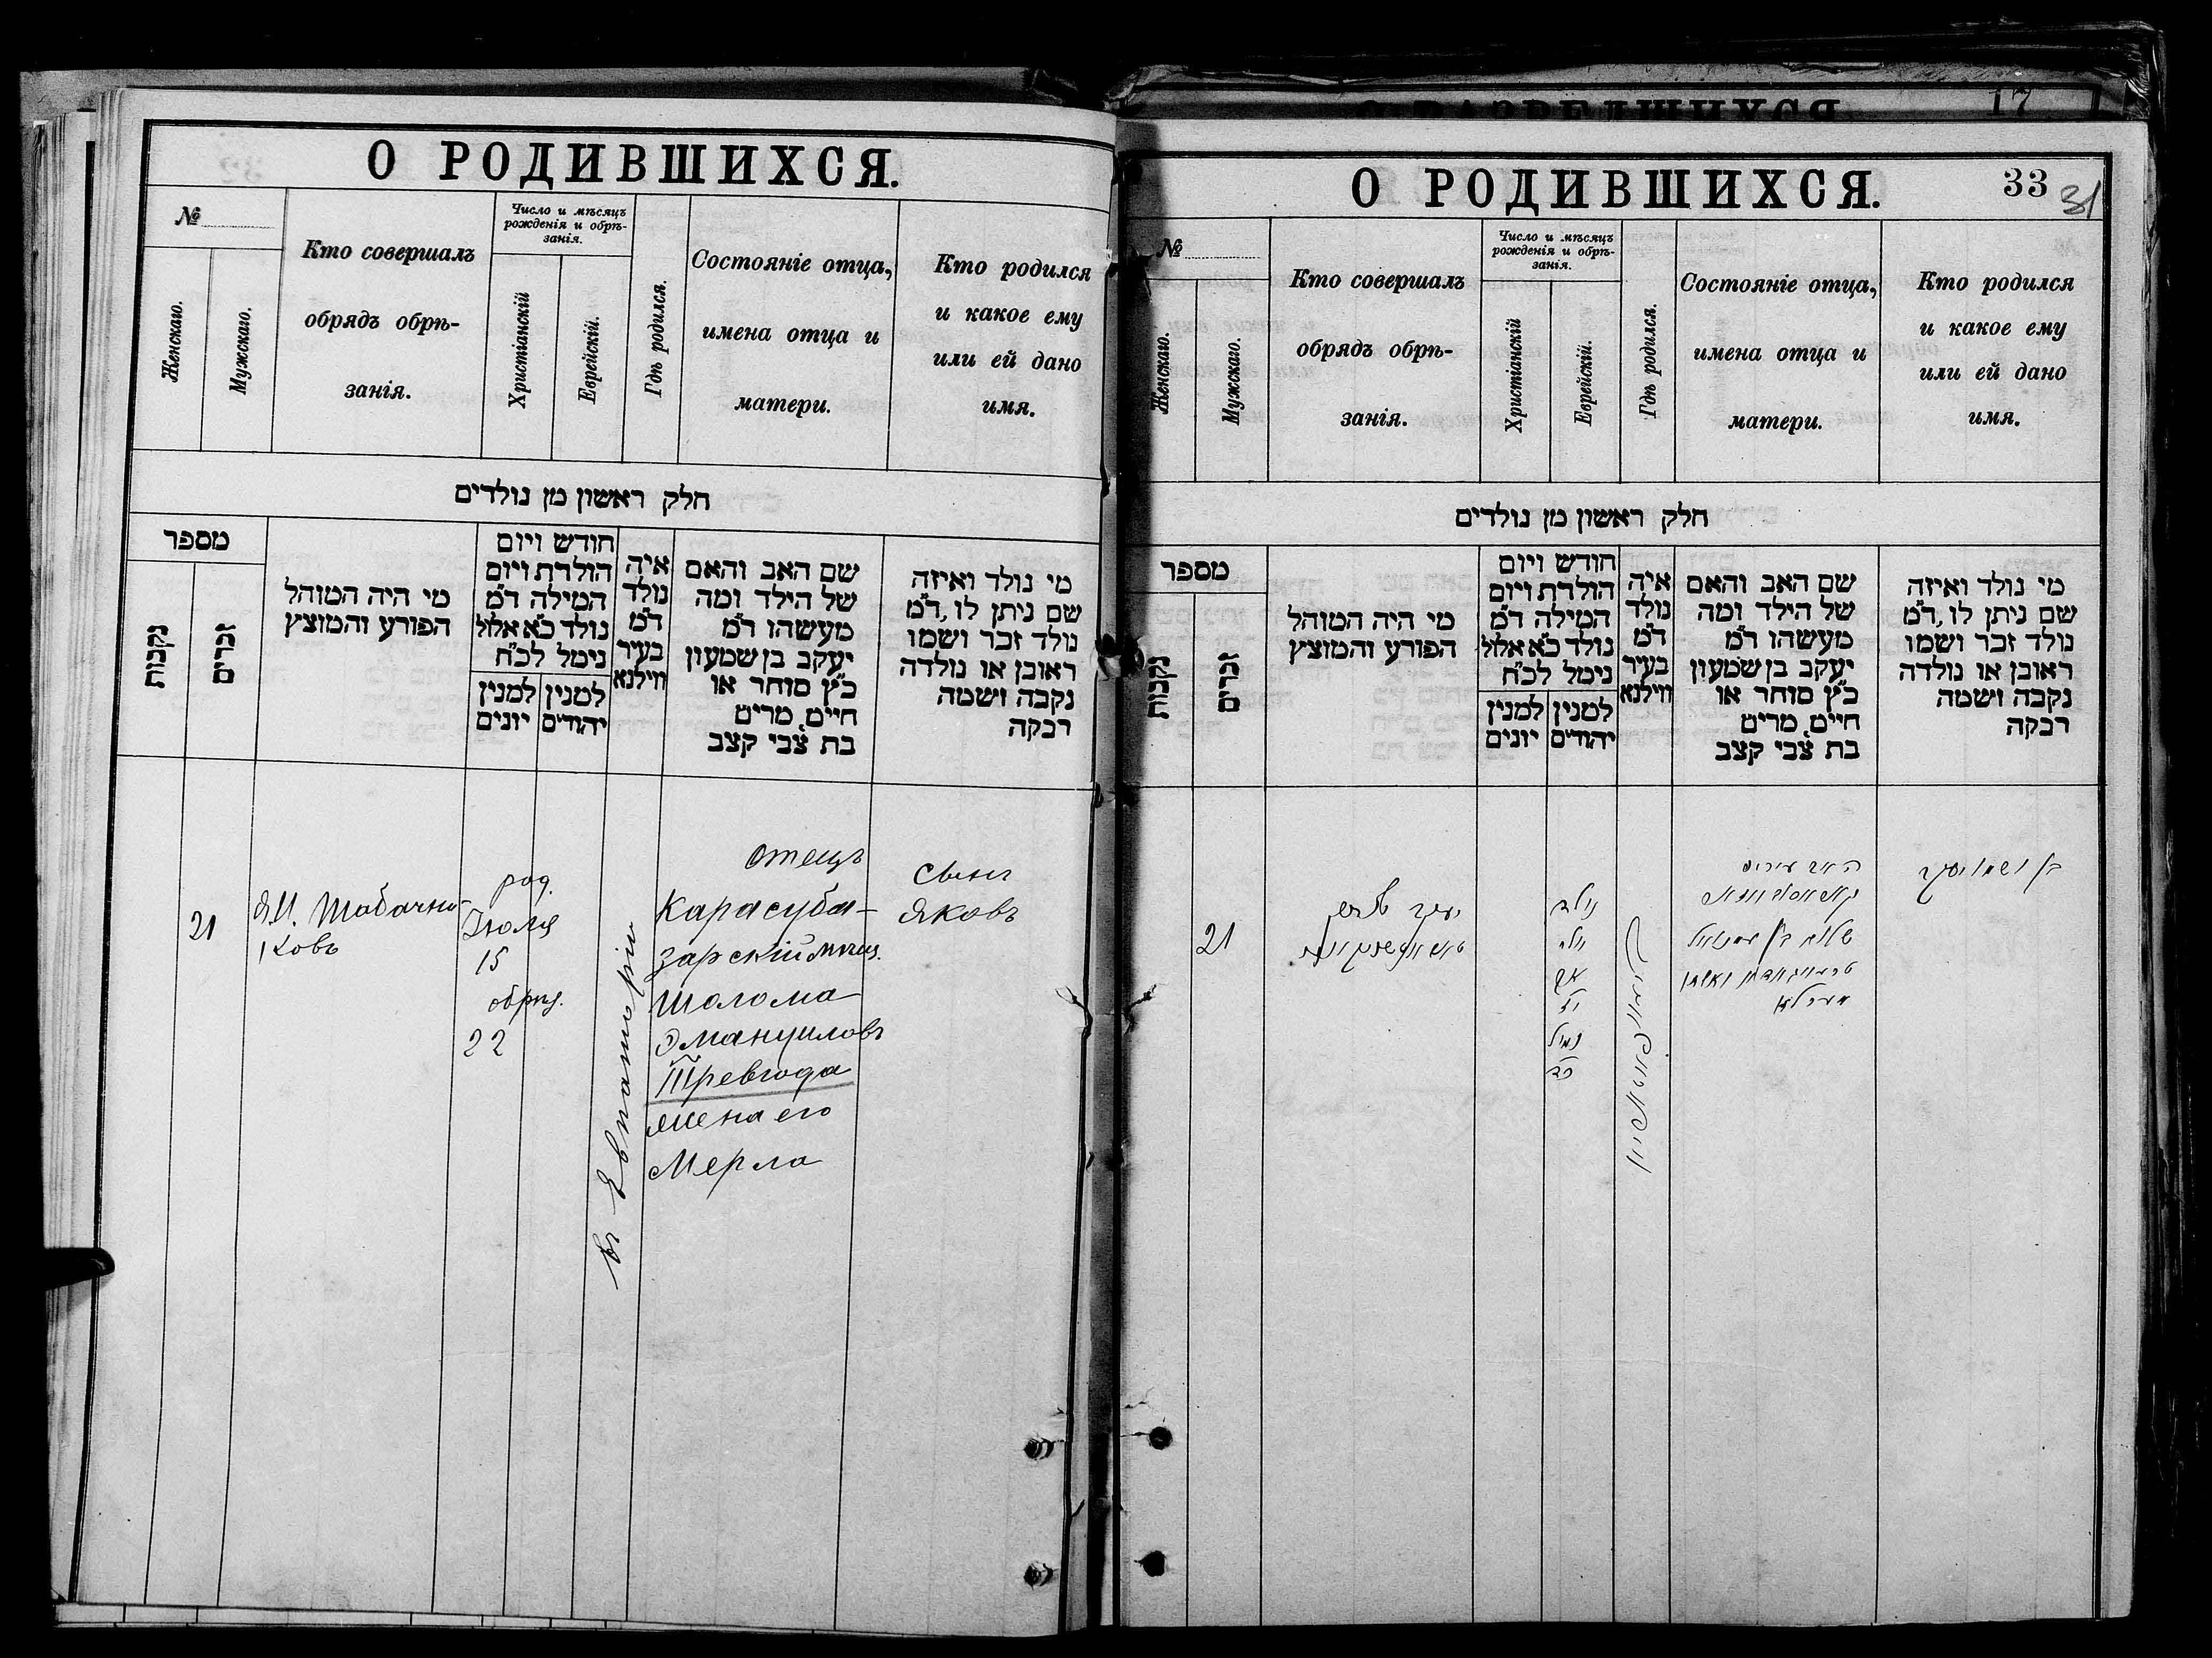 О РОДИВШИХСЯ.
№
Женскаго.
Мужскаго.
Кто совершалъ
обрядъ обрѣ-
занія.
Число и мѣсяцъ
рожденія и обрѣ-
занія.
Христіанскій
Еврейскій.
Гдѣ родился.
Состояніе отца,
имена отца и
матери.
Кто родился
и какое ему
или ей дано
имя.
חלק ראשון מן נולדים
מספר
נקבות
זכרים
מי היה המוהל
הפורע והמוצץ
חודש ויום
הולדת ויום
המילה ד״מ
נולד כ״א אלול
נימל לכ״ח
למנין יונים
למנין יהודים
איה
נולד
ד״מ
בעיר
ווילנא
שם האב והאם
של הילד ומה
מעשהו ד״מ
יעקב בן שמעון
כ״ץ סוחר או
חיים, מרים
בת צבי קצב
מי נולד ואיזה
שם ניתן לו, ד״מ
נולד זכר ושמו
ראובן או נולדה
נקבה ושמה
רבקה
21
Я.И. Табачни-
ковъ
род.
Іюля
15
обрѣз.
22
въ Евпаторіи
отецъ
Карасуба-
зарскій мѣщ.
Шолома
Эмануиловъ
Тревгода
жена его
Мерла
Сынъ
Яковъ
17
О РОДИВШИХСЯ.
33
31
№
Женскаго.
Мужскаго.
Кто совершалъ
обрядъ обрѣ-
занія.
Число и мѣсяцъ
рожденія и обрѣ-
занія.
Христіанскій
Еврейскій.
Гдѣ родился.
Состояніе отца,
имена отца и
матери.
Кто родился
и какое ему
или ей дано
имя.
חלק ראשון מן נולדים
מספר
נקבות
זכרים
מי היה המוהל
הפורע והמוצץ
חודש ויום
הולדת ויום
המילה ד״מ
נולד כ״א אלול
נימל לכ״ח
למנין יונים
למנין יהודים
איה
נולד
ד״מ
בעיר
ווילנא
שם האב והאם
של הילד ומה
מעשהו ד״מ
יעקב בן שמעון
כ״ץ סוחר או
חיים, מרים
בת צבי קצב
מי נולד ואיזה
שם ניתן לו, ד״מ
נולד זכר ושמו
ראובן או נולדה
נקבה ושמה
רבקה
21
יעקב
נולד
נמול
שלום בן עמנואל
בן ושמו יעקב